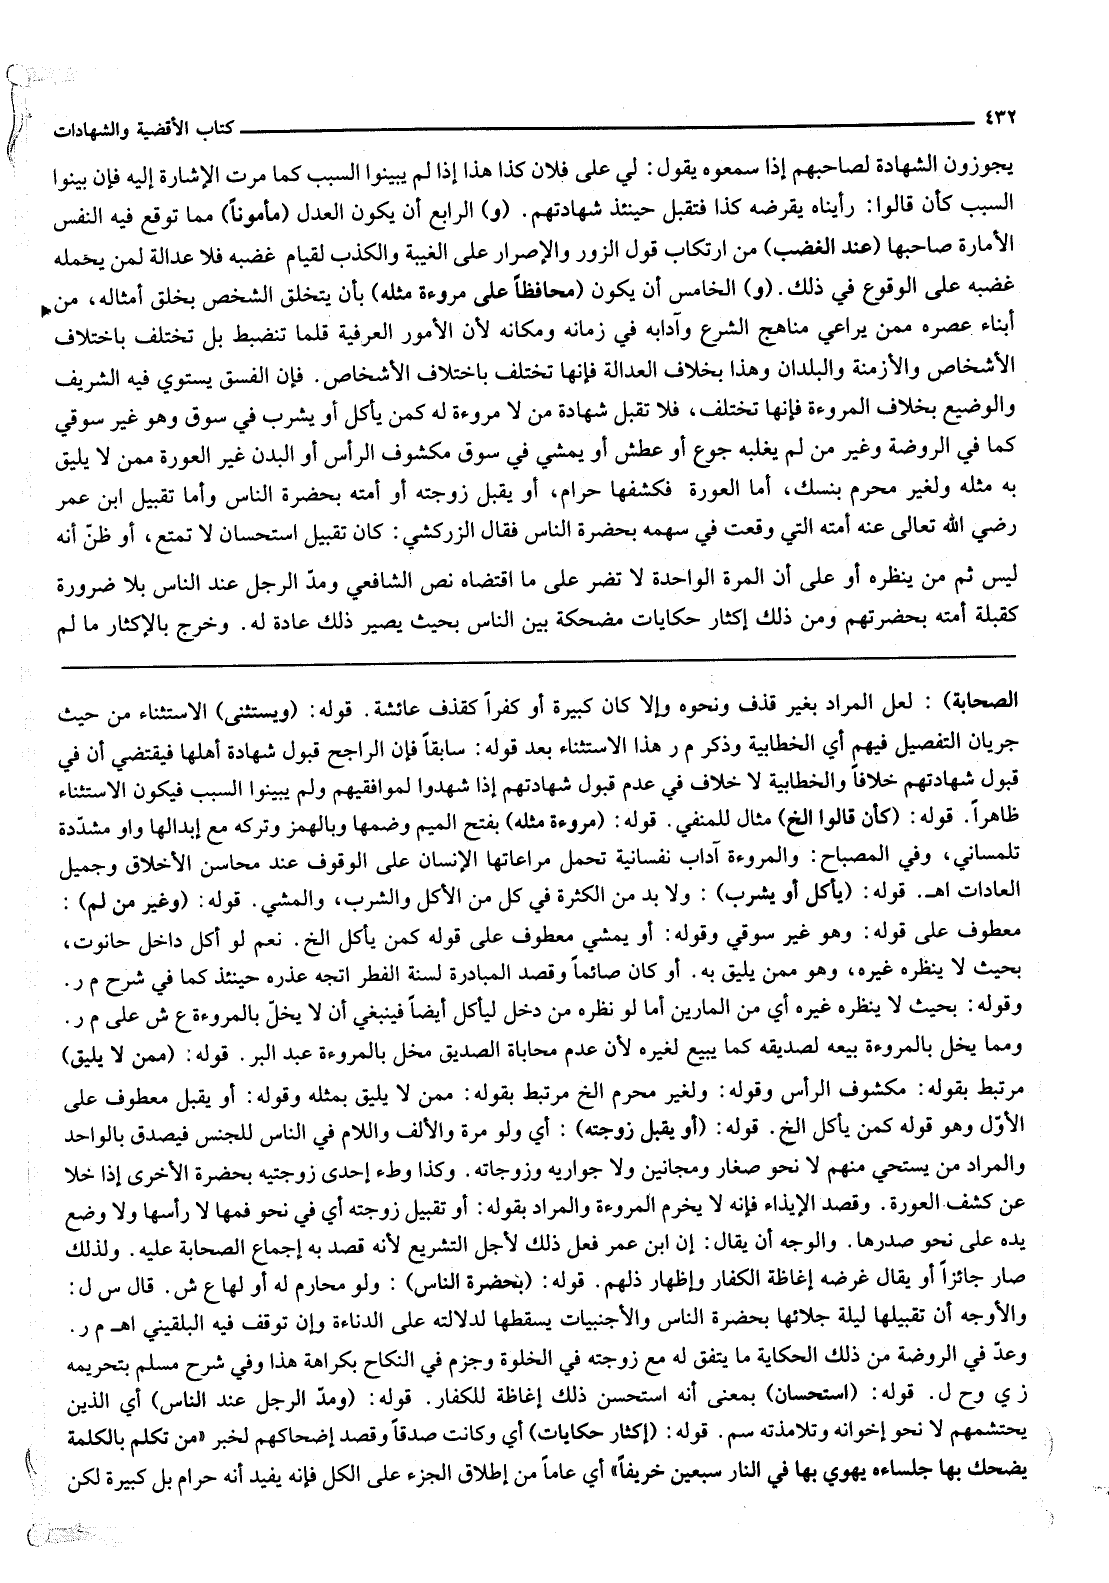 ٤٣٢ كتاب الأقضية والشهادات
يجوزون الشهادة لصاحبهم إذا سمعوه يقول: لي على فلان كذا هذا إذا لم يبينوا السبب كما مرت الإشارة إليه فإن بينوا
السبب كأن قالوا: رأيناه يقرضه كذا فتقبل حينئذ شهادتهم. (و) الرابع أن يكون العدل (مأموناً) مما توقع فيه النفس
الأمارة صاحبها (عند الغضب) من ارتكاب قول الزور والإصرار على الغيبة والكذب لقيام غضبه فلا عدالة لمن يحمله
غضبه على الوقوع في ذلك. (و) الخامس أن يكون (محافظاً على مروءة مثله) بأن يتخلق الشخص بخلق أمثاله، من
أبناء عصره ممن يراعي مناهج الشرع وآدابه في زمانه ومكانه لأن الأمور العرفية قلما تنضبط بل تختلف باختلاف
الأشخاص والأزمنة والبلدان وهذا بخلاف العدالة فإنها تختلف باختلاف الأشخاص. فإن الفسق يستوي فيه الشريف
والوضيع بخلاف المروءة فإنها تختلف، فلا تقبل شهادة من لا مروءة له كمن يأكل أو يشرب في سوق وهو غير سوقي
كما في الروضة وغير من لم يغلبه جوع أو عطش أو يمشي في سوق مكشوف الرأس أو البدن غير العورة ممن لا يليق
به مثله ولغير محرم بنسك، أما العورة فكشفها حرام، أو يقبل زوجته أو أمته بحضرة الناس وأما تقبيل ابن عمر
رضي الله تعالى عنه أمته التي وقعت في سهمه بحضرة الناس فقال الزركشي: كان تقبيل استحسان لا تمتع، أو ظنّ أنه
ليس ثم من ينظره أو على أن المرة الواحدة لا تضر على ما اقتضاه نص الشافعي ومدّ الرجل عند الناس بلا ضرورة
كقبلة أمته بحضرتهم ومن ذلك إكثار حكايات مضحكة بين الناس بحيث يصير ذلك عادة له. وخرج بالإكثار ما لم
الصحابة) : لعل المراد بغير قذف ونحوه وإلا كان كبيرة أو كفراً كقذف عائشة. قوله: (ويستثنى) الاستثناء من حيث
جريان التفصيل فيهم أي الخطابية وذكر م ر هذا الاستثناء بعد قوله: سابقاً فإن الراجح قبول شهادة أهلها فيقتضي أن في
قبول شهادتهم خلافاً والخطابية لا خلاف في عدم قبول شهادتهم إذا شهدوا لموافقيهم ولم يبينوا السبب فيكون الاستثناء
ظاهراً. قوله: (كأن قالوا الخ) مثال للمنفي. قوله: (مروءة مثله) بفتح الميم وضمها وبالهمز وتركه مع إبدالها واو مشدّدة
تلمساني، وفي المصباح: والمروءة آداب نفسانية تحمل مراعاتها الإنسان على الوقوف عند محاسن الأخلاق وجميل
العادات اهـ. قوله: (يأكل أو يشرب) : ولا بد من الكثرة في كل من الأكل والشرب، والمشي. قوله: (وغير من لم) :
معطوف على قوله: وهو غير سوقي وقوله: أو يمشي معطوف على قوله كمن يأكل الخ. نعم لو أكل داخل حانوت،
بحيث لا ينظره غيره، وهو ممن يليق به. أو كان صائماً وقصد المبادرة لسنة الفطر اتجه عذره حينئذ كما في شرح م ر.
وقوله: بحيث لا ينظره غيره أي من المارين أما لو نظره من دخل ليأكل أيضاً فينبغي أن لا يخلّ بالمروءة ع ش على م ر.
ومما يخل بالمروءة بيعه لصديقه كما يبيع لغيره لأن عدم محاباة الصديق مخل بالمروءة عبد البر. قوله: (ممن لا يليق)
مرتبط بقوله: مكشوف الرأس وقوله: ولغير محرم الخ مرتبط بقوله: ممن لا يليق بمثله وقوله: أو يقبل معطوف على
الأوّل وهو قوله كمن يأكل الخ. قوله: (أو يقبل زوجته) : أي ولو مرة والألف واللام في الناس للجنس فيصدق بالواحد
والمراد من يستحي منهم لا نحو صغار ومجانين ولا جواريه وزوجاته. وكذا وطء إحدى زوجتيه بحضرة الأخرى إذا خلا
عن كشف العورة. وقصد الإيذاء فإنه لا يخرم المروءة والمراد بقوله: أو تقبيل زوجته أي في نحو فمها لا رأسها ولا وضع
يده على نحو صدرها. والوجه أن يقال: إن ابن عمر فعل ذلك لأجل التشريع لأنه قصد به إجماع الصحابة عليه. ولذلك
صار جائزاً أو يقال غرضه إغاظة الكفار وإظهار ذلهم. قوله: (بحضرة الناس) : ولو محارم له أو لها ع ش. قال س ل:
والأوجه أن تقبيلها ليلة جلائها بحضرة الناس والأجنبيات يسقطها لدلالته على الدناءة وإن توقف فيه البلقيني اهـ م ر.
وعدّ في الروضة من ذلك الحكاية ما يتفق له مع زوجته في الخلوة وجزم في النكاح بكراهة هذا وفي شرح مسلم بتحريمه
ز ي وح ل. قوله: (استحسان) بمعنى أنه استحسن ذلك إغاظة للكفار. قوله: (ومدّ الرجل عند الناس) أي الذين
يحتشمهم لا نحو إخوانه وتلامذته سم. قوله: (إكثار حكايات) أي وكانت صدقاً وقصد إضحاكهم لخبر «من تكلم بالكلمة
يضحك بها جلساءه يهوي بها في النار سبعين خريفاً» أي عاماً من إطلاق الجزء على الكل فإنه يفيد أنه حرام بل كبيرة لكن